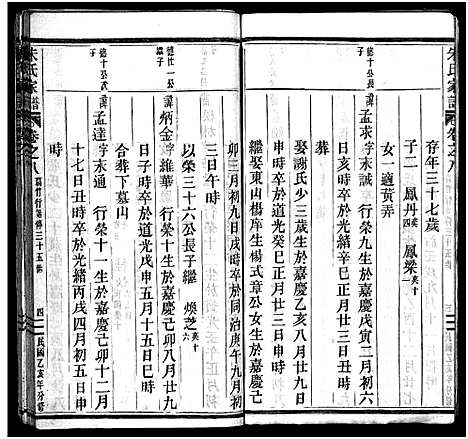 朱氏家譜 卷之八
存年三十七歲
子二 鳳丹英四 鳳梁英十
女一適黃弄
德十公長子
諱孟求字末誠 行榮九生於嘉慶戊寅二月初六
日亥時卒於光緒辛巳正月廿三日寅時
娶謝氏少三歲生於嘉慶乙亥八月廿九日
申時卒於道光癸巳正月廿三日申時
葬
繼娶東山楊岸生楊式章公女生於嘉慶己
卯三月初九日戌時卒於同治庚午九月初
三日午時
以榮三十六公長子繼 煥芝英十
德廿一公繼子
諱炳金字維華 行榮十生於嘉慶己卯八月廿九
日子時卒於道光戊申五月十五日巳時
合葬下墓山
德十公貳子
諱孟達字末通 行榮十一生於嘉慶己卯十二月
十七日丑時卒於光緒丙戌四月初五日申
時
朱氏家譜 卷之八 四 民國乙亥年分脩